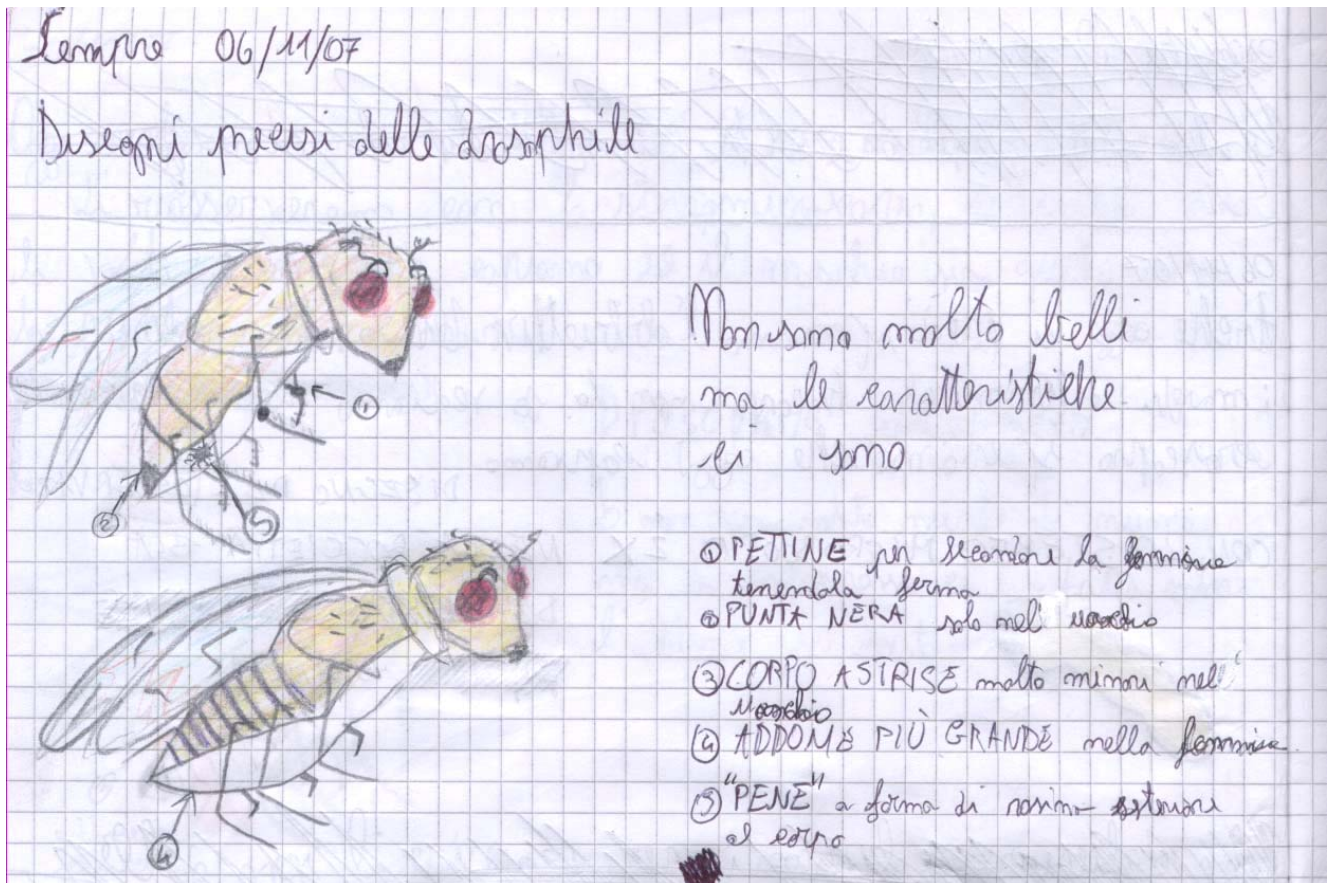 Sempre 06/11/07
Disegni precisi delle drosophile
Non sono molto belli
ma le caratteristiche
ci sono
① PETTINE per fecondare la femmina
tenendola ferma
② PUNTA NERA solo nel maschio
③ CORPO A STRISE molto minori nel
maschio
④ ADDOME PIÙ GRANDE nella femmina
⑤ "PENE" a forma di rosino esteriore
al corpo
①
②
⑤
④